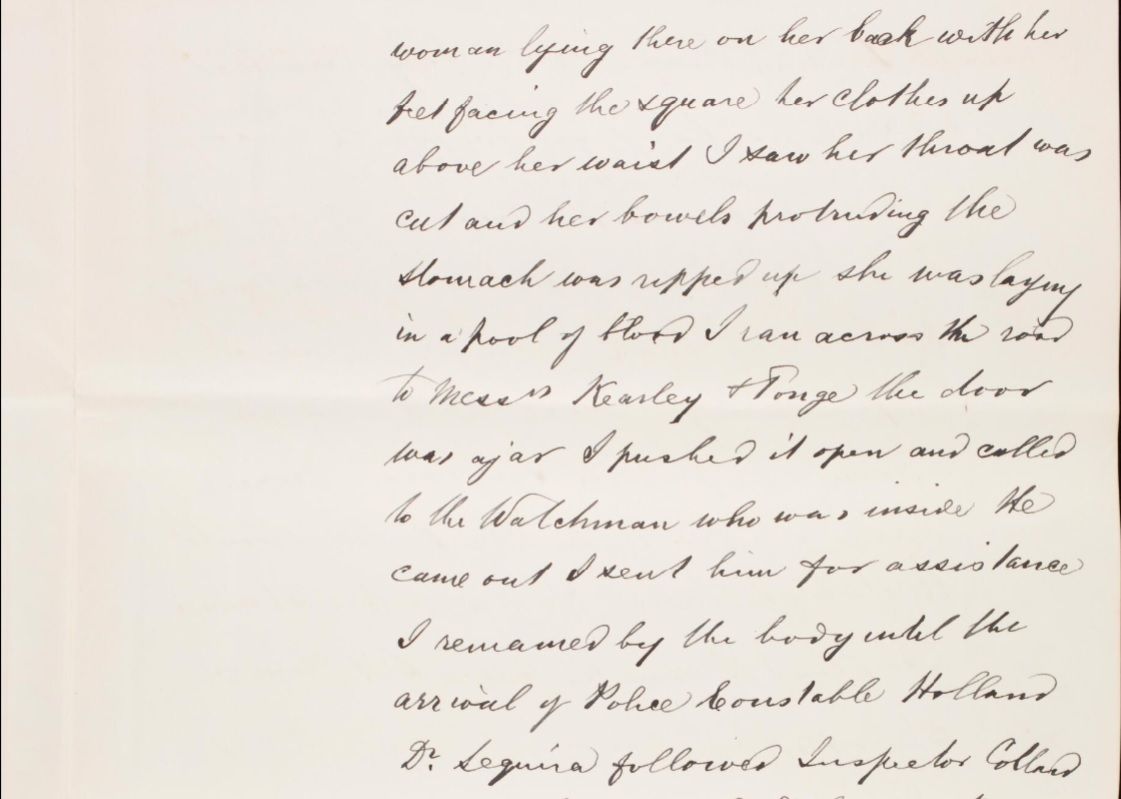 woman lying there on her back with her
feet facing the square her clothes up
above her waist I saw her throat was
cut and her bowels protruding the
stomach was ripped up she was laying
in a pool of blood I ran across the road
to Messrs Kearley & Tonge the door
was ajar I pushed it open and called
to the Watchman who was inside He
came out I sent him for assistance
I remained by the body until the
arrival of Police Constable Holland
Dr. Sequira followed Inspector Collard